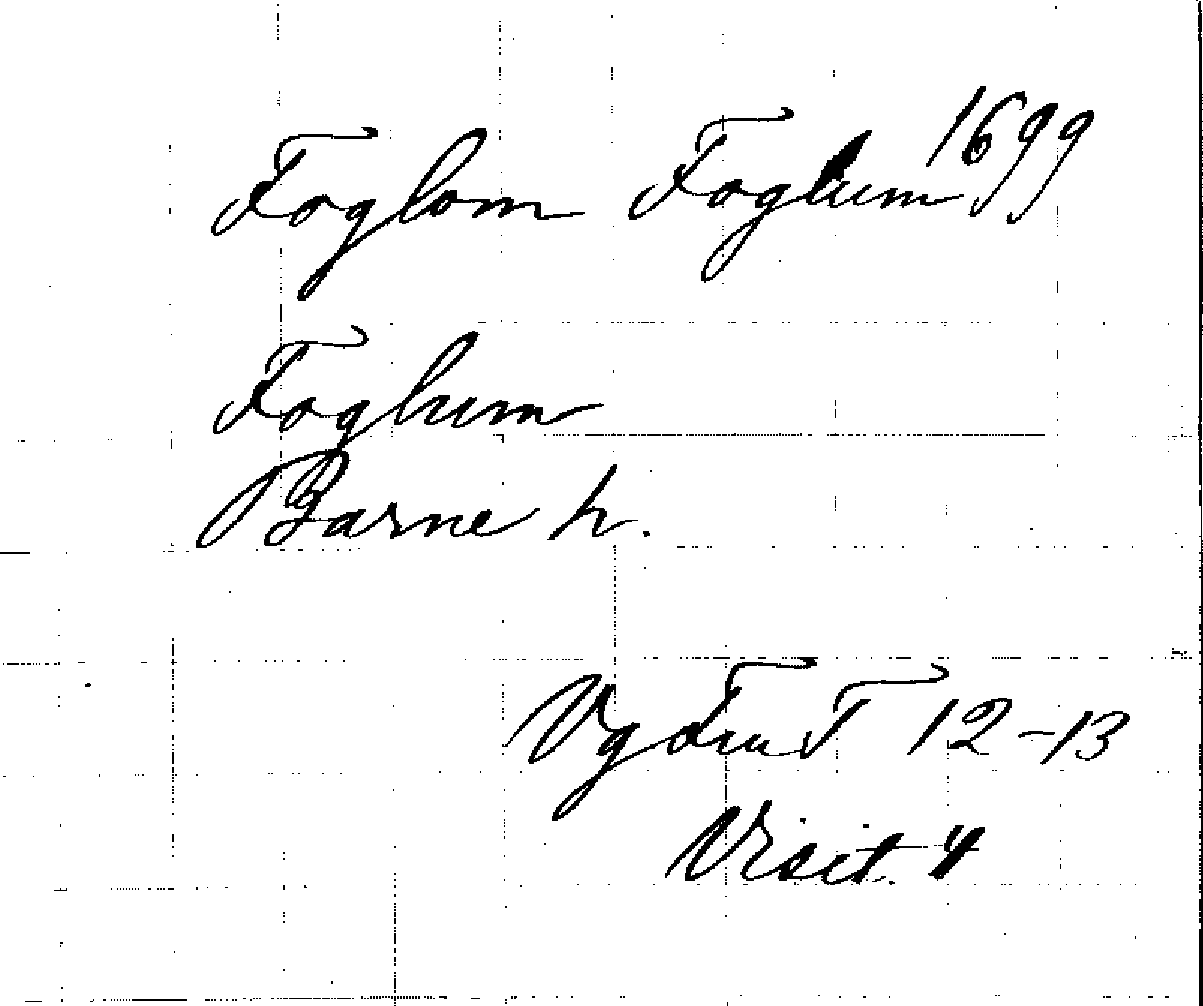 Foglom Foglum 1699
Foglum
Barne h.
Vg Fru T 12-13
Visit. 4